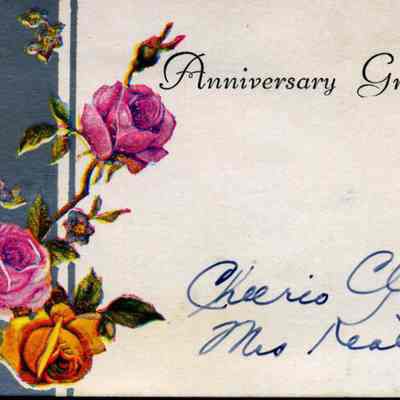 Anniversary Gr
Cheerio Cl
Mrs Keat